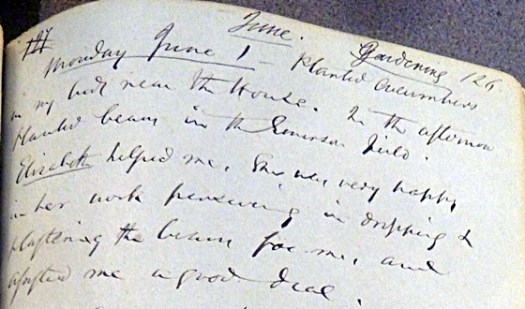 June. Gardening 126
Monday June 1 - Planted Cucumbers
in my beds near the House. In the afternoon
Planted beans in the Emerson field.
Elizabeth helped me. She was very happy
in her work persevering in dropping &
plastering the beans for me, and
assisted me a good deal.